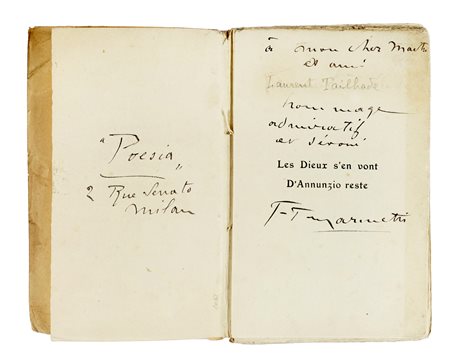 "Poesia"
2 Rue Senato
Milan
à mon cher Maître
et ami
Laurent Tailhade
hommage
admiratif
et dévoué
Les Dieux s'en vont
D'Annunzio reste
F. T. Marinetti